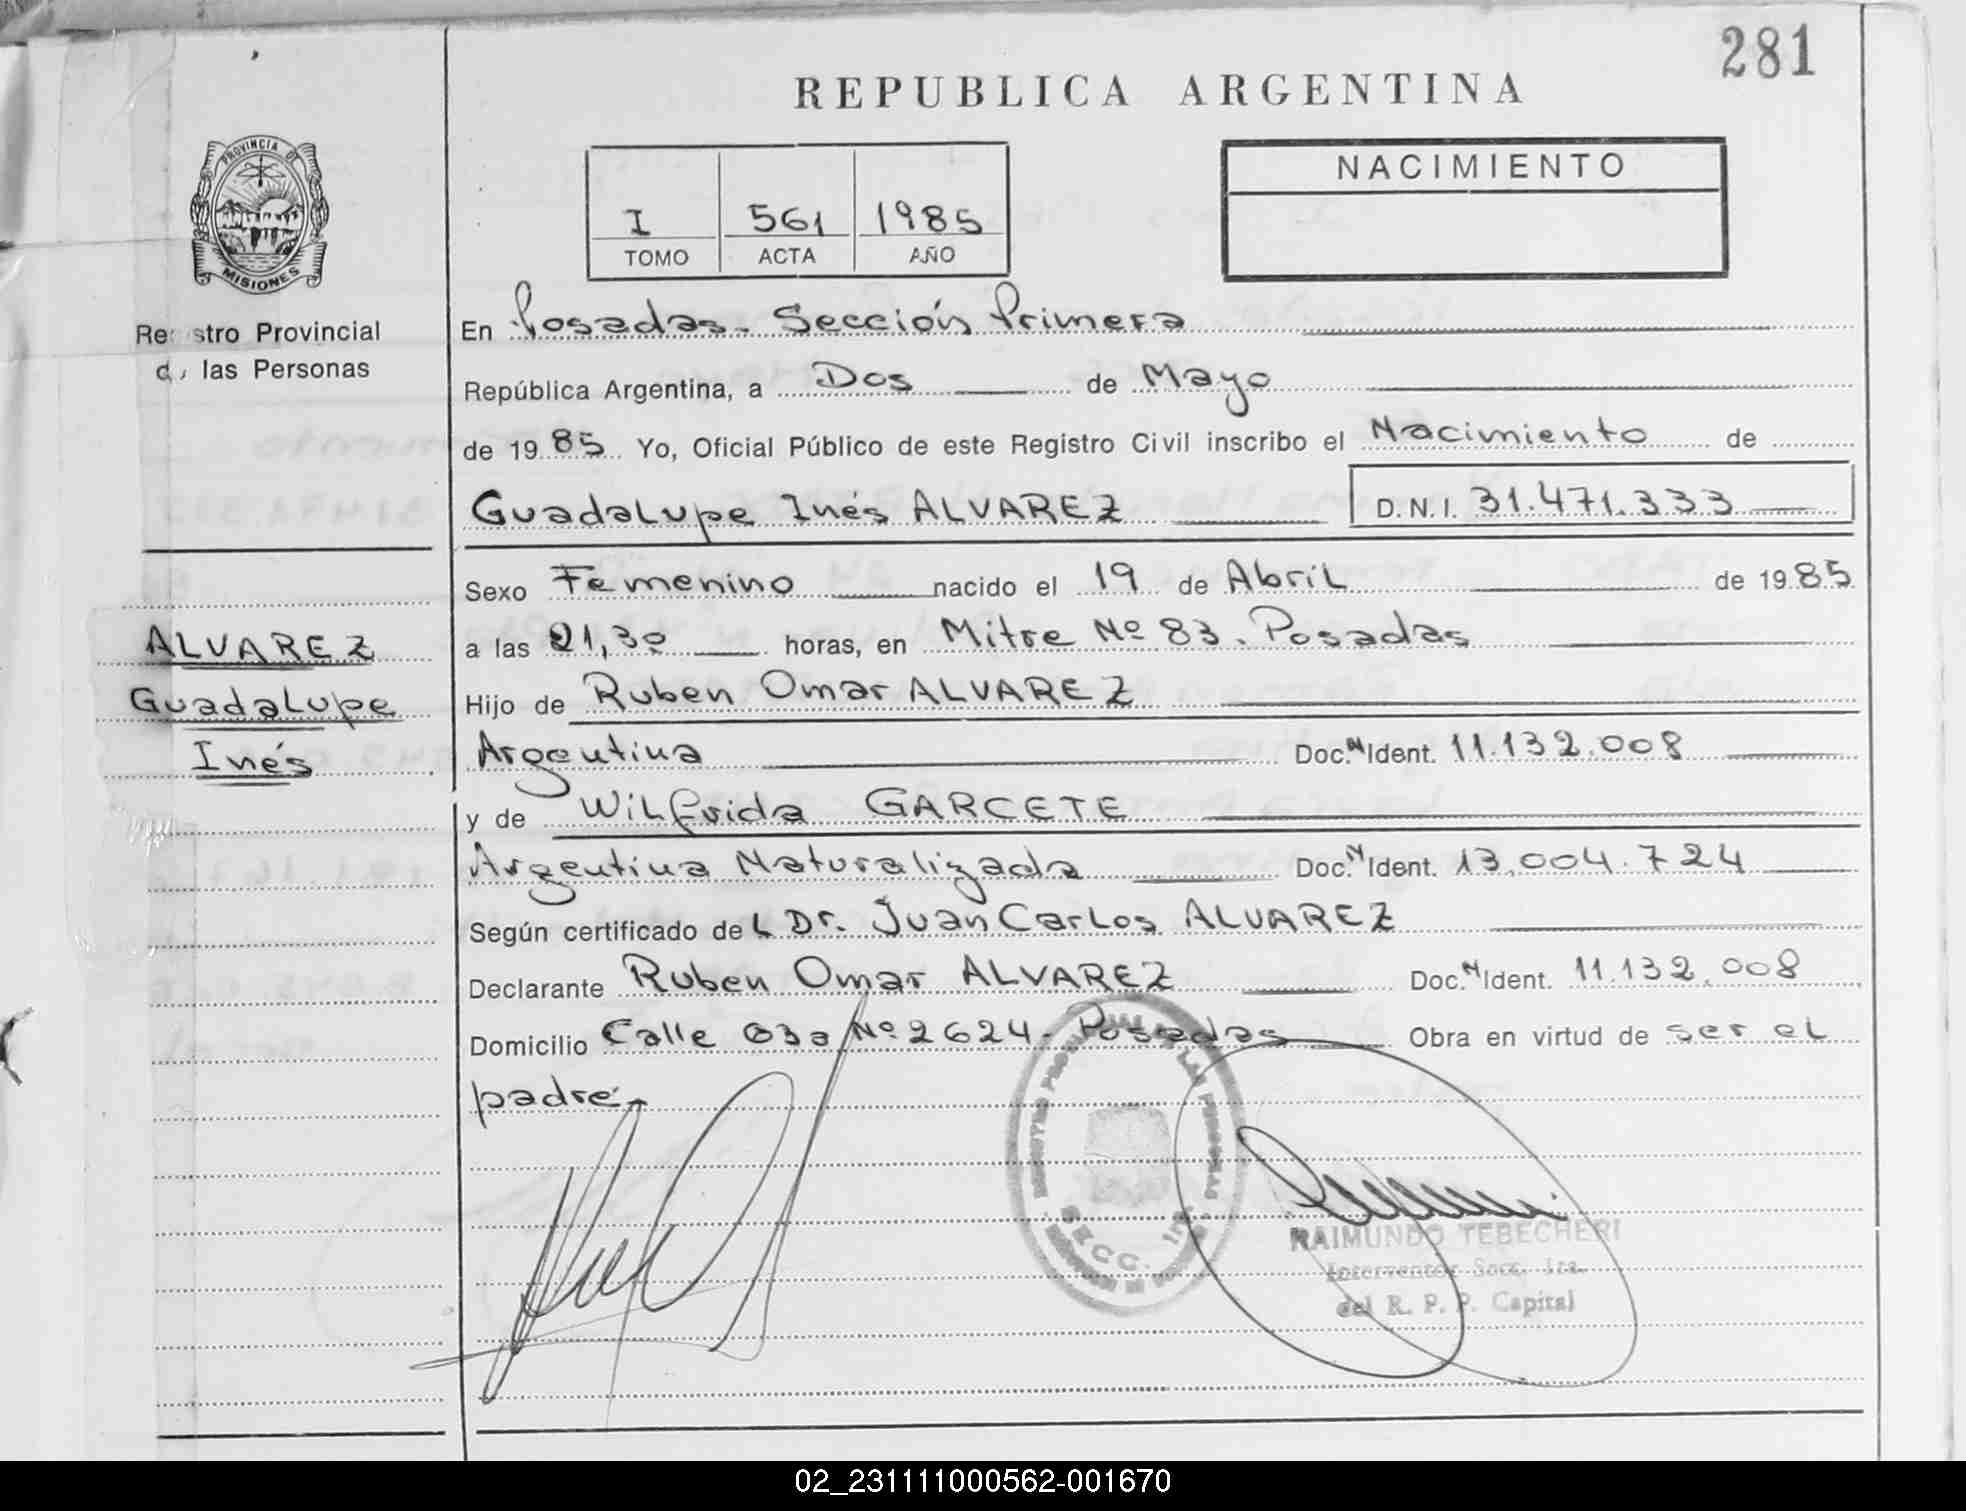 281
REPUBLICA ARGENTINA
PROVINCIA DE
MISIONES
I 561 1985
TOMO ACTA AÑO
NACIMIENTO
Registro Provincial
de las Personas
En Posadas. Sección Primera
República Argentina, a Dos de Mayo
de 1985. Yo, Oficial Público de este Registro Civil inscribo el Nacimiento de
Guadalupe Inés ALVAREZ D.N.I. 31.471.333
Sexo Femenino nacido el 19 de Abril de 1985
a las 21,30 horas, en Mitre Nº 83. Posadas
Hijo de Ruben Omar ALVAREZ
Argentina Doc. N Ident. 11.132.008
y de Wilfrida GARCETE
Argentina Naturalizada Doc. N Ident. 13.004.724
Según certificado del Dr. Juan Carlos ALVAREZ
Declarante Ruben Omar ALVAREZ Doc. N Ident. 11.132.008
Domicilio Calle 03a Nº 2624- Posadas Obra en virtud de ser el
padre.-
ALVAREZ
Guadalupe
Inés
SECC. 1ra.
RAIMUNDO TEBECHERI
Interventor Secc. 1ra.
del R. P. P. Capital
02_231111000562-001670